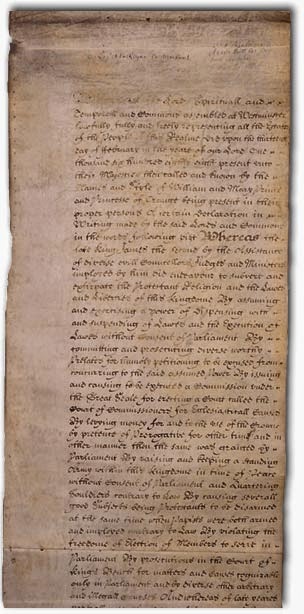 Lords Spirituall and
Temporall and Commons assembled at Westminster
lawfully fully and freely representing all the Estates
of the People of this Realme did upon the thirteenth
day of February in the yeare of our Lord One
thousand six hundred eighty eight present unto
their Majesties then called and known by the
Names and Style of William and Mary Prince
and Princesse of Orange being present in their
proper persons A certain Declaration in
Writing made by the said Lords and Commons
in the words following viz Whereas the
late King James the Second by the Assistance
of diverse evill Councellors Judges and Ministers
imployed by him did endeavor to subvert and
extirpate the Protestant Religion and the Lawes
and Liberties of this Kingdome By assuming
and exercising a power of Dispensing with
and suspending of Lawes and the Execution of
Lawes without Consent of Parliament By
committing and prosecuting diverse worthy
Prelates for humbly petitioning to be excused from
concurring to the said assumed Power By issuing
and causing to be executed a Commission under
the Great Seale for erecting a Court called the
Court of Commissioners for Ecclesiasticall Causes
By levying money for and to the use of the Crowne
by pretence of Prerogative for other time and in
other manner than the same was granted by
Parliament By raising and keeping a standing
Army within this Kingdome in time of Peace
without Consent of Parliament and Quartering
Souldiers contrary to Law By causing severall
good Subjects being Protestants to be disarmed
at the same time when Papists were both armed
and imployed contrary to Law By violating the
freedome of Election of Members to serve in
Parliament By prosecutions in the Court of
King's Bench for matters and causes cognizable
only in Parliament and by diverse other arbitrary
and illegall Courses And whereas of late yeares